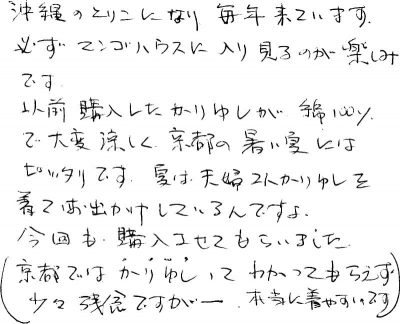 沖縄のとりこになり毎年来ています。
必ずマンゴハウスに入り見るのが楽しみ
です。
以前購入したかりゆしが綿100%
で大変涼しく京都の暑い夏には
ピッタリです。夏は夫婦2人かりゆしを
着てお出かけしているんですよ。
今回も購入させてもらいました。
(京都ではかりゆしってわかってもらえず
少々残念ですがー 本当に着やすいです)